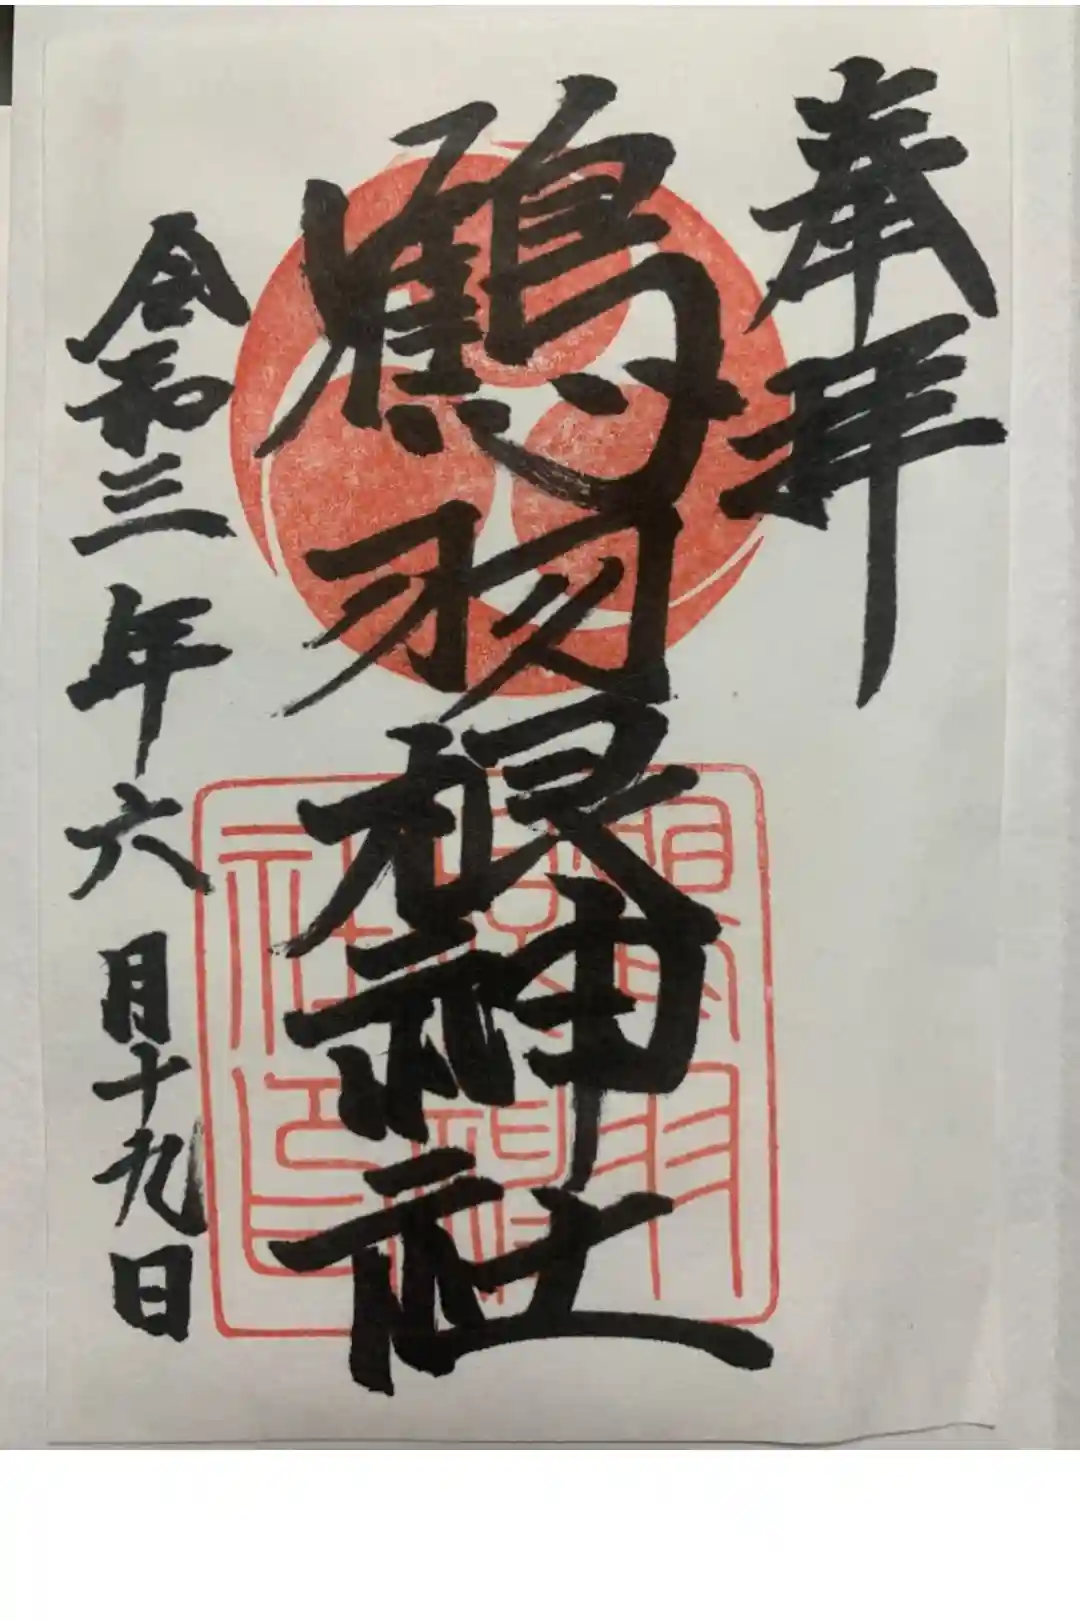 奉拝
鶴羽根神社
令和三年六月十九日
社印